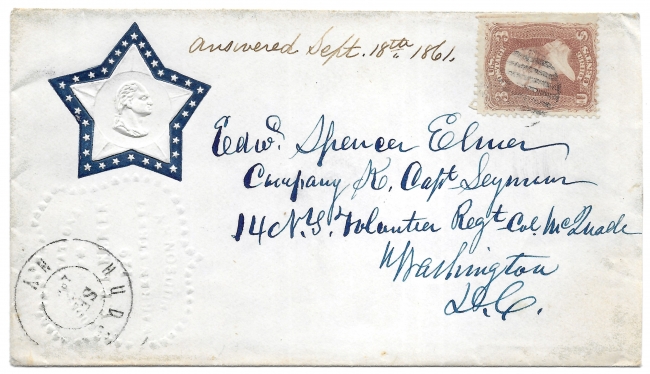 answered Sept. 18th 1861.
Edwd. Spencer Elmer
Company K, Capt Seymour
14 N.Y. Volunteer Regt. Col. McQuade
Washington
D.C.
HUDS
N.Y
SEP